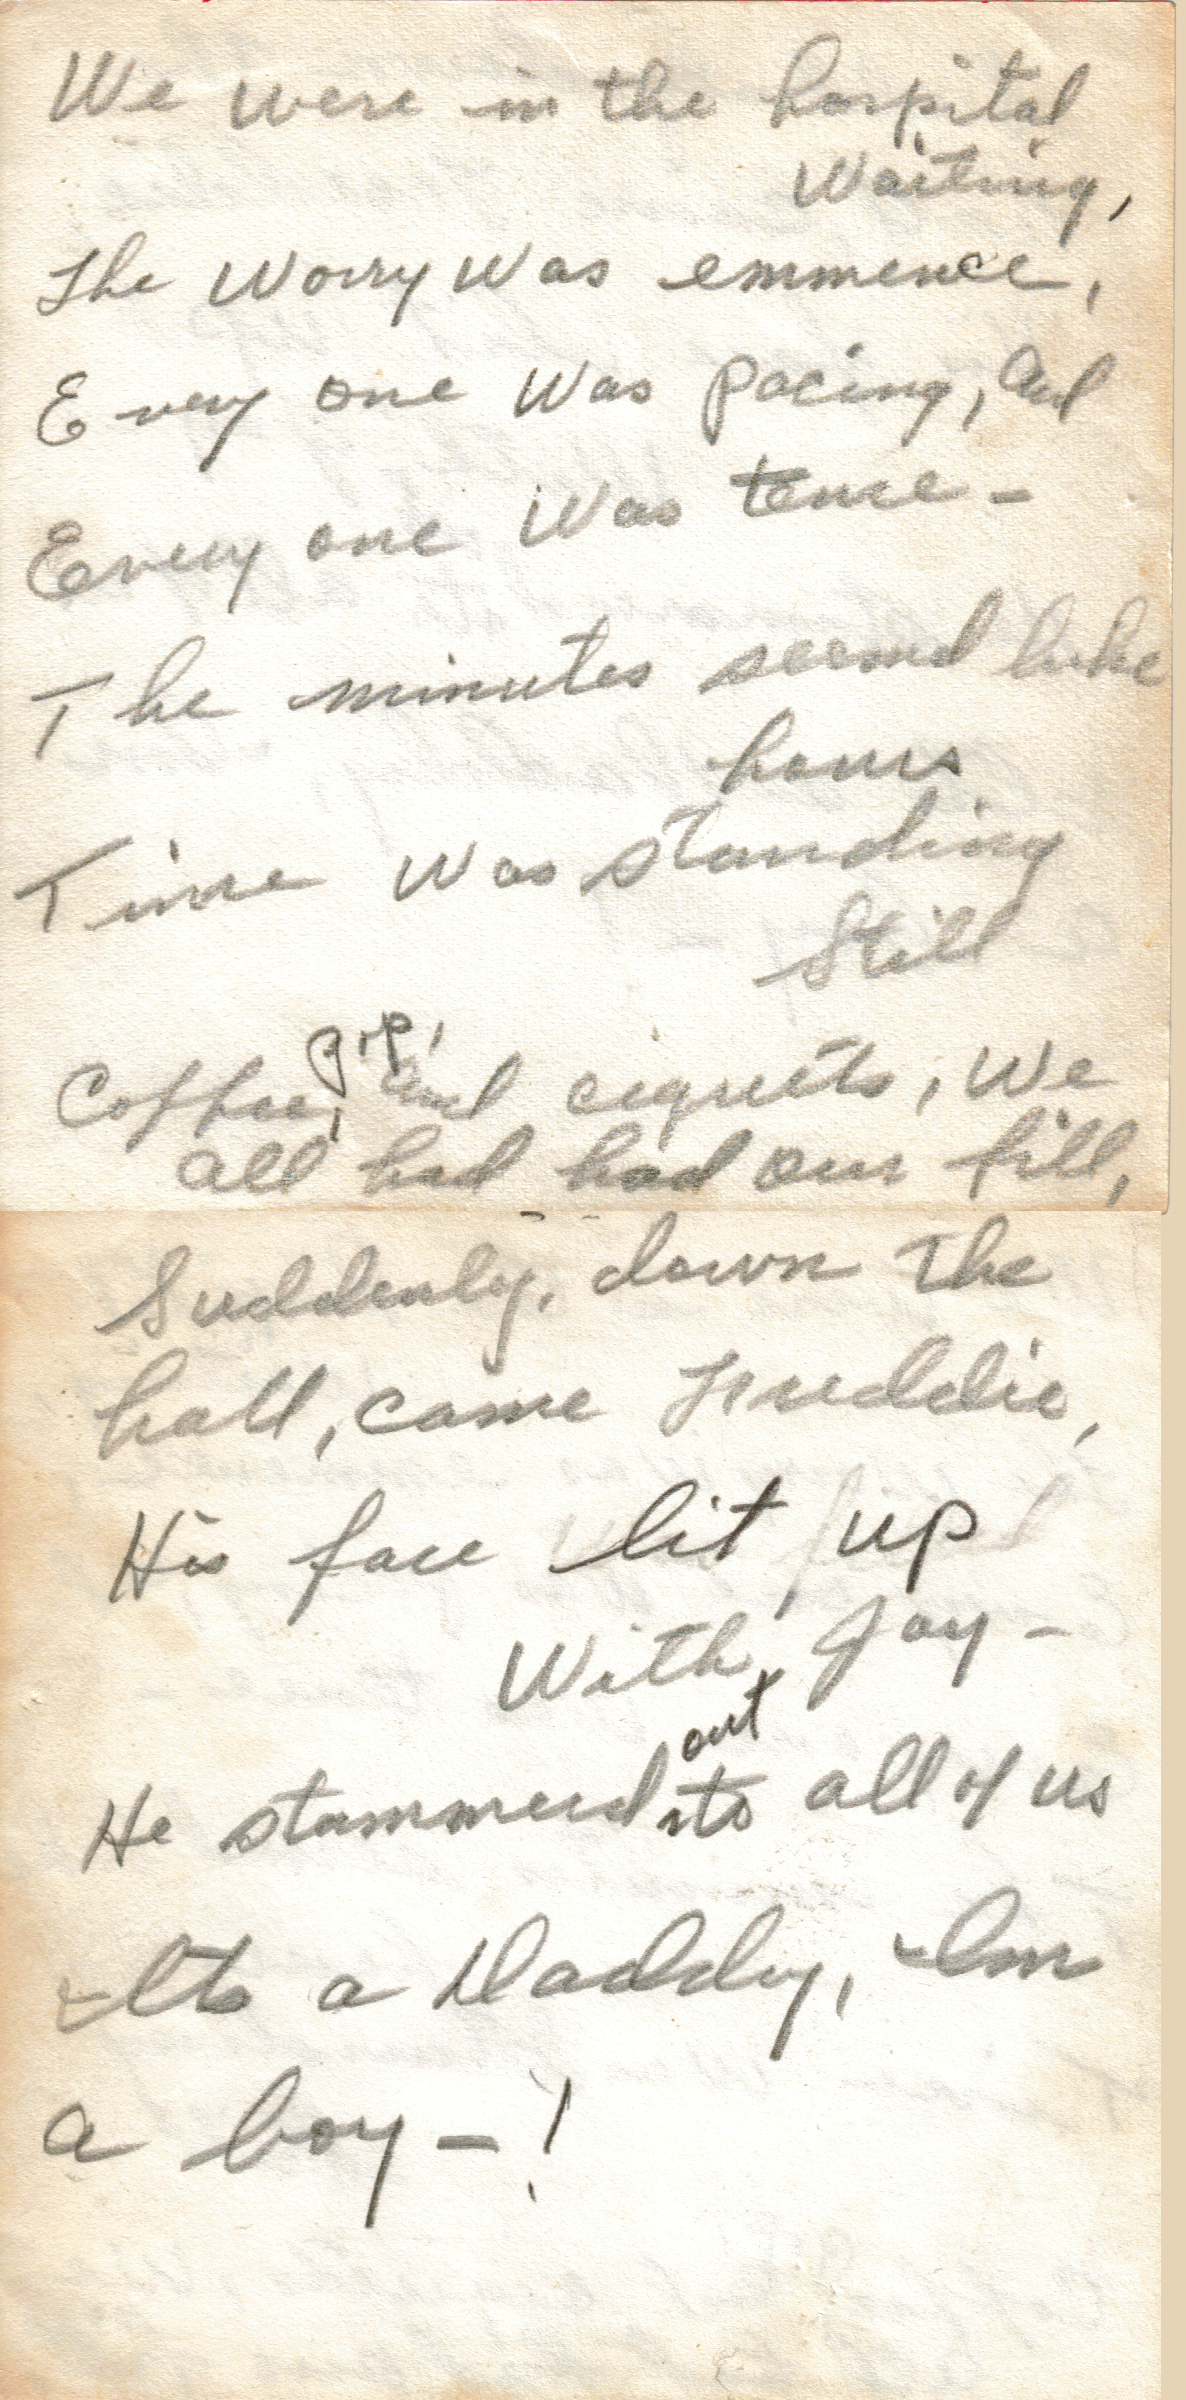 We were in the hospital
Waiting,
The Worry Was emmence,
Every one Was Pacing, and
Every one Was tence -
The minutes seemd like
hours
Time Was standing
Still
pip,
Coffee, and cigretts, We
all had had our fill,
Suddenly, down The
hall, came Freddie,
His face lit up
With Joy -
out
He stammerd to all of us
Its a Daddy, Im
a boy - !